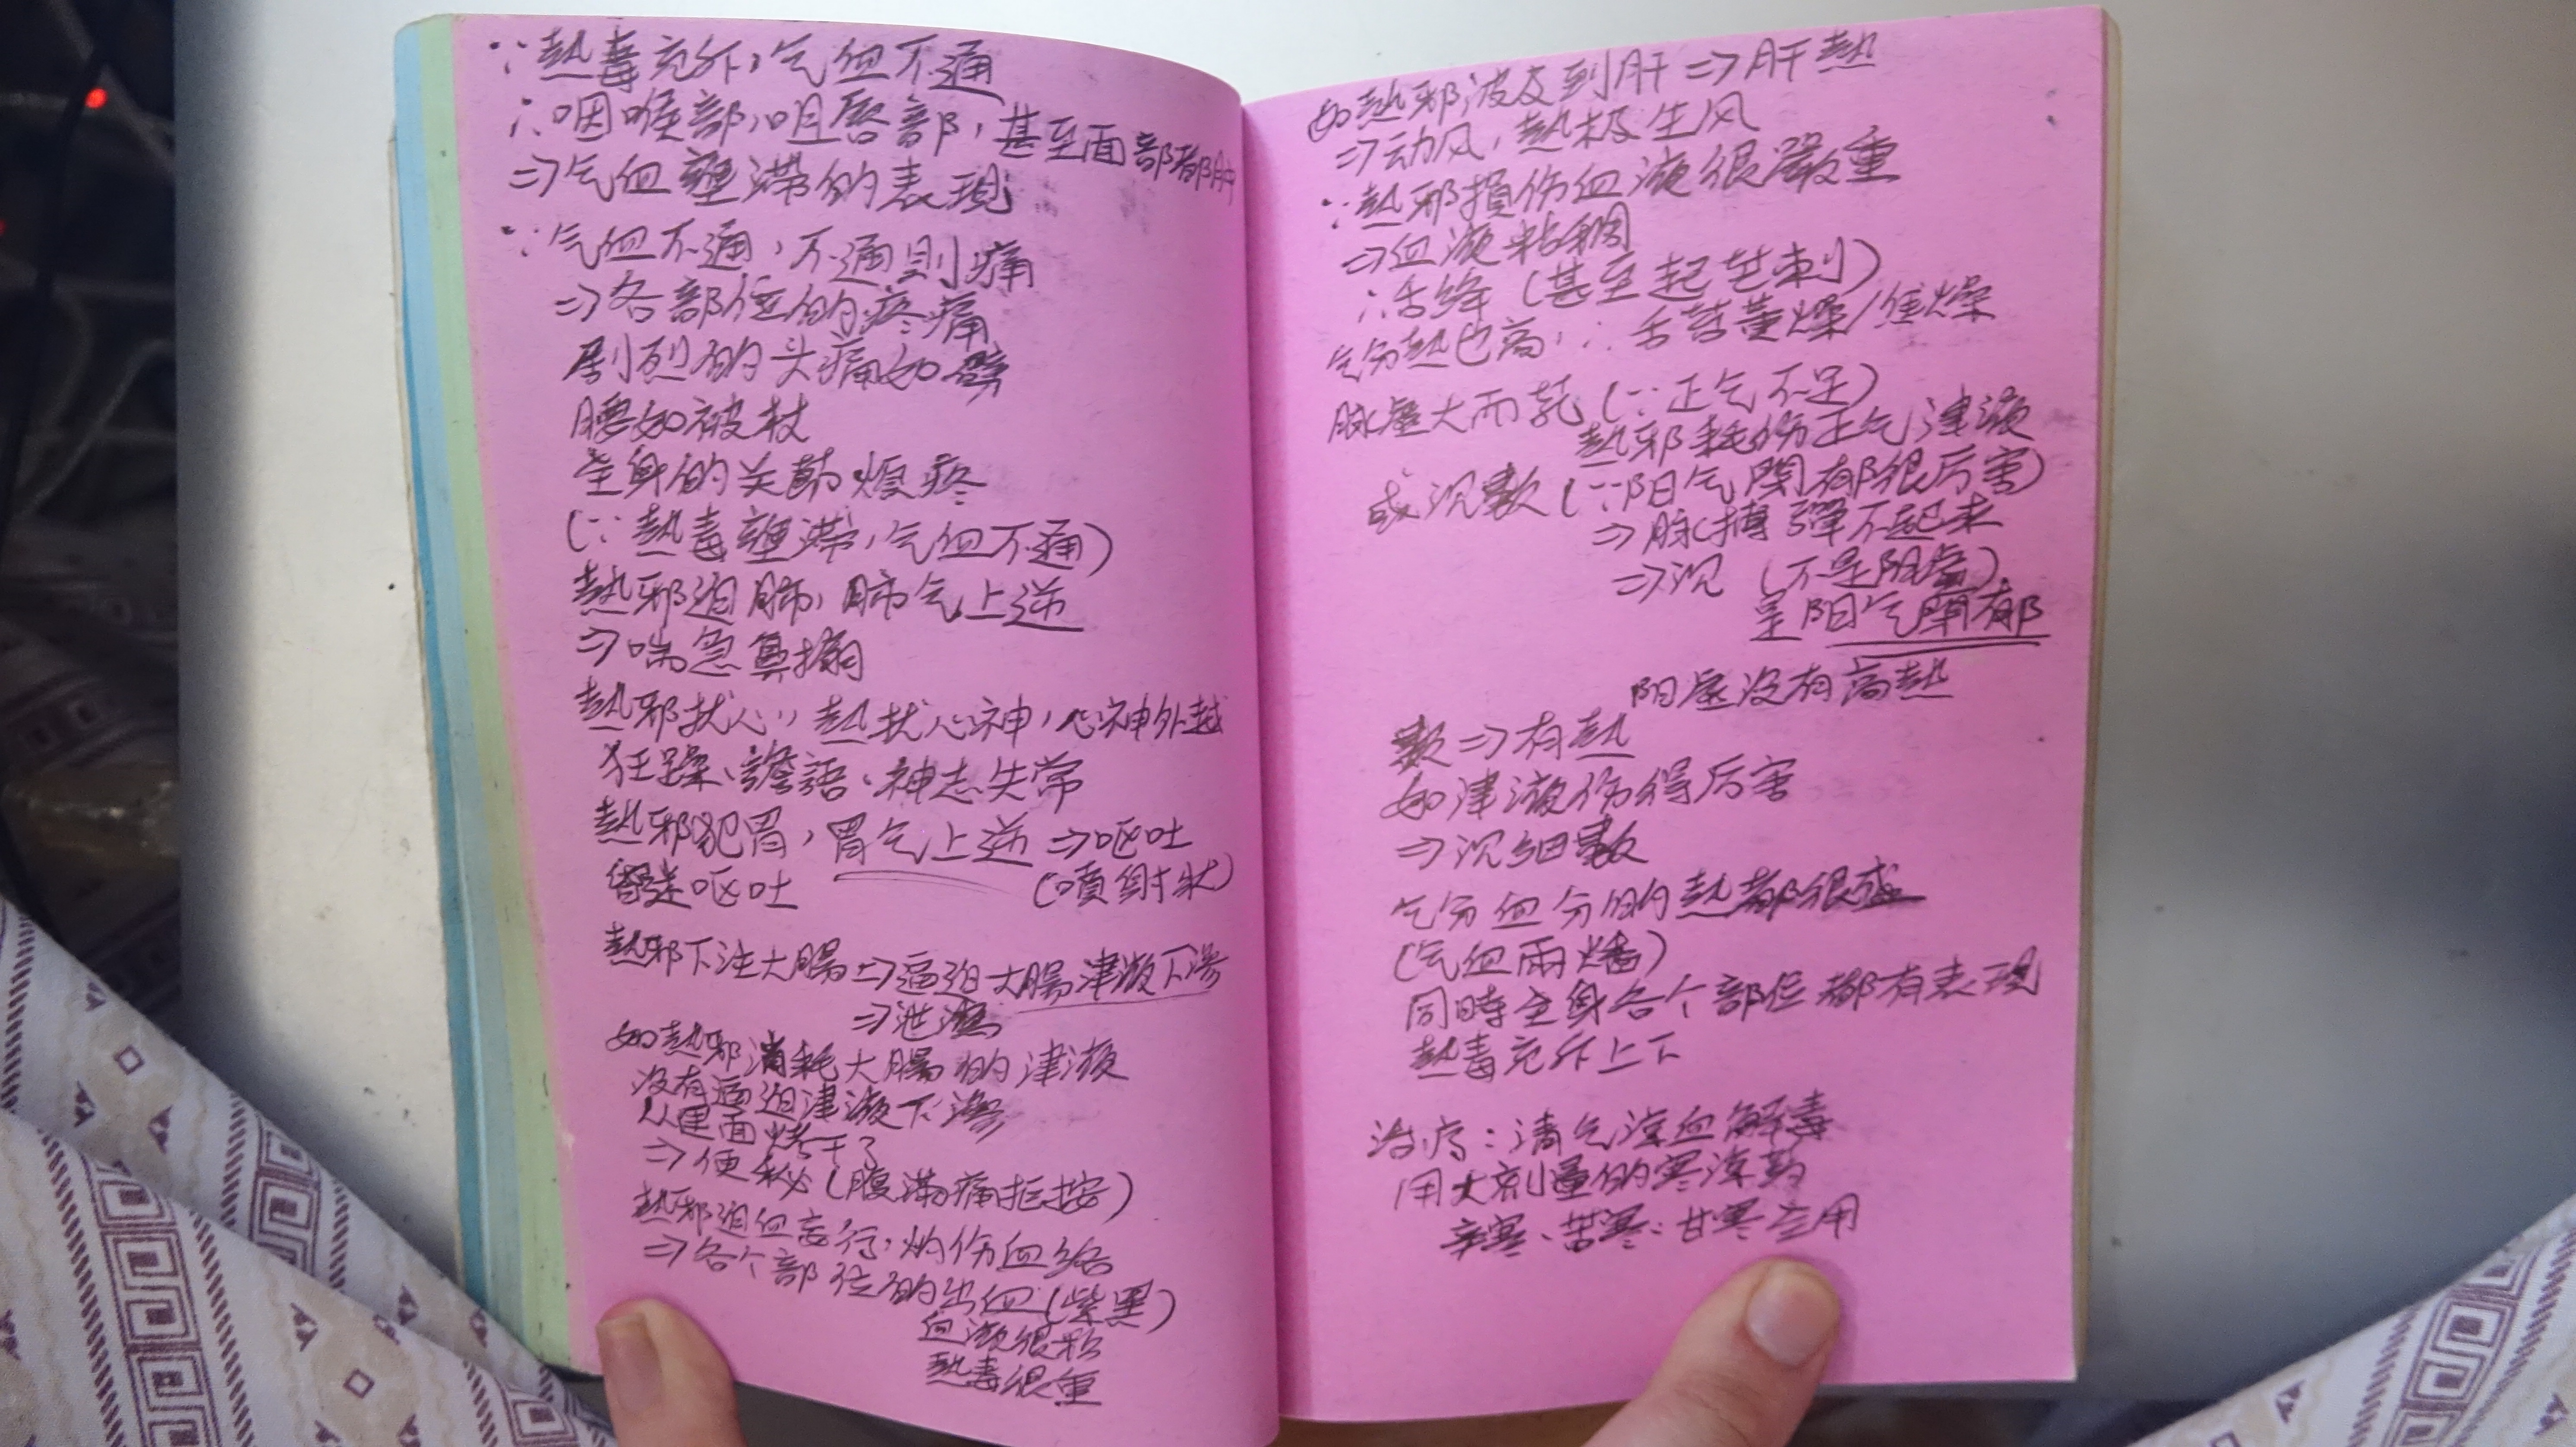 ∵熱毒充斥，气血不通
∴咽喉部，咀唇部，甚至面部都肿
⇒气血壅滞的表現
∵气血不通，不通則痛
⇒各部位的疼痛
剧烈的头痛如劈
腰如被杖
全身的关節煩疼
(∵熱毒壅滞，气血不通)
熱邪迫肺，肺气上逆
⇒喘急鼻搧
熱邪扰心，熱扰心神，心神外越
狂躁、譫語、神志失常
熱邪犯胃，胃气上逆⇒呕吐
呕吐 (噴射状)
熱邪下注大腸⇒逼迫大腸津液下滲
⇒泄瀉
如熱邪消耗大腸的津液
没有逼迫津液下滲
从里面烤干了
⇒便秘(腹满痛拒按)
熱邪迫血妄行，灼伤血络
⇒各个部位的出血(紫黑)
血液很粘
熱毒很重
如熱邪波及到肝⇒肝熱
⇒动风，熱极生风
∵熱邪損伤血液很嚴重
⇒血液粘稠
∴舌绛(甚至起芒刺)
气分熱也高，∴舌苔黄燥/焦燥
脉虚大而芤(∵正气不足)
熱邪耗伤正气津液
或沉數(∵阳气閉郁很厉害)
⇒脉搏彈不起来
⇒沉 (不是阳虚)
是阳气閉郁
阳虚没有高熱
數⇒有熱
如津液伤得厉害
⇒沉细數
气分血分的熱都很盛
(气血兩燔)
同時全身各个部位都有表現
熱毒充斥上下
治疗：清气凉血解毒
用大剂量的寒凉药
辛寒、苦寒、甘寒应用